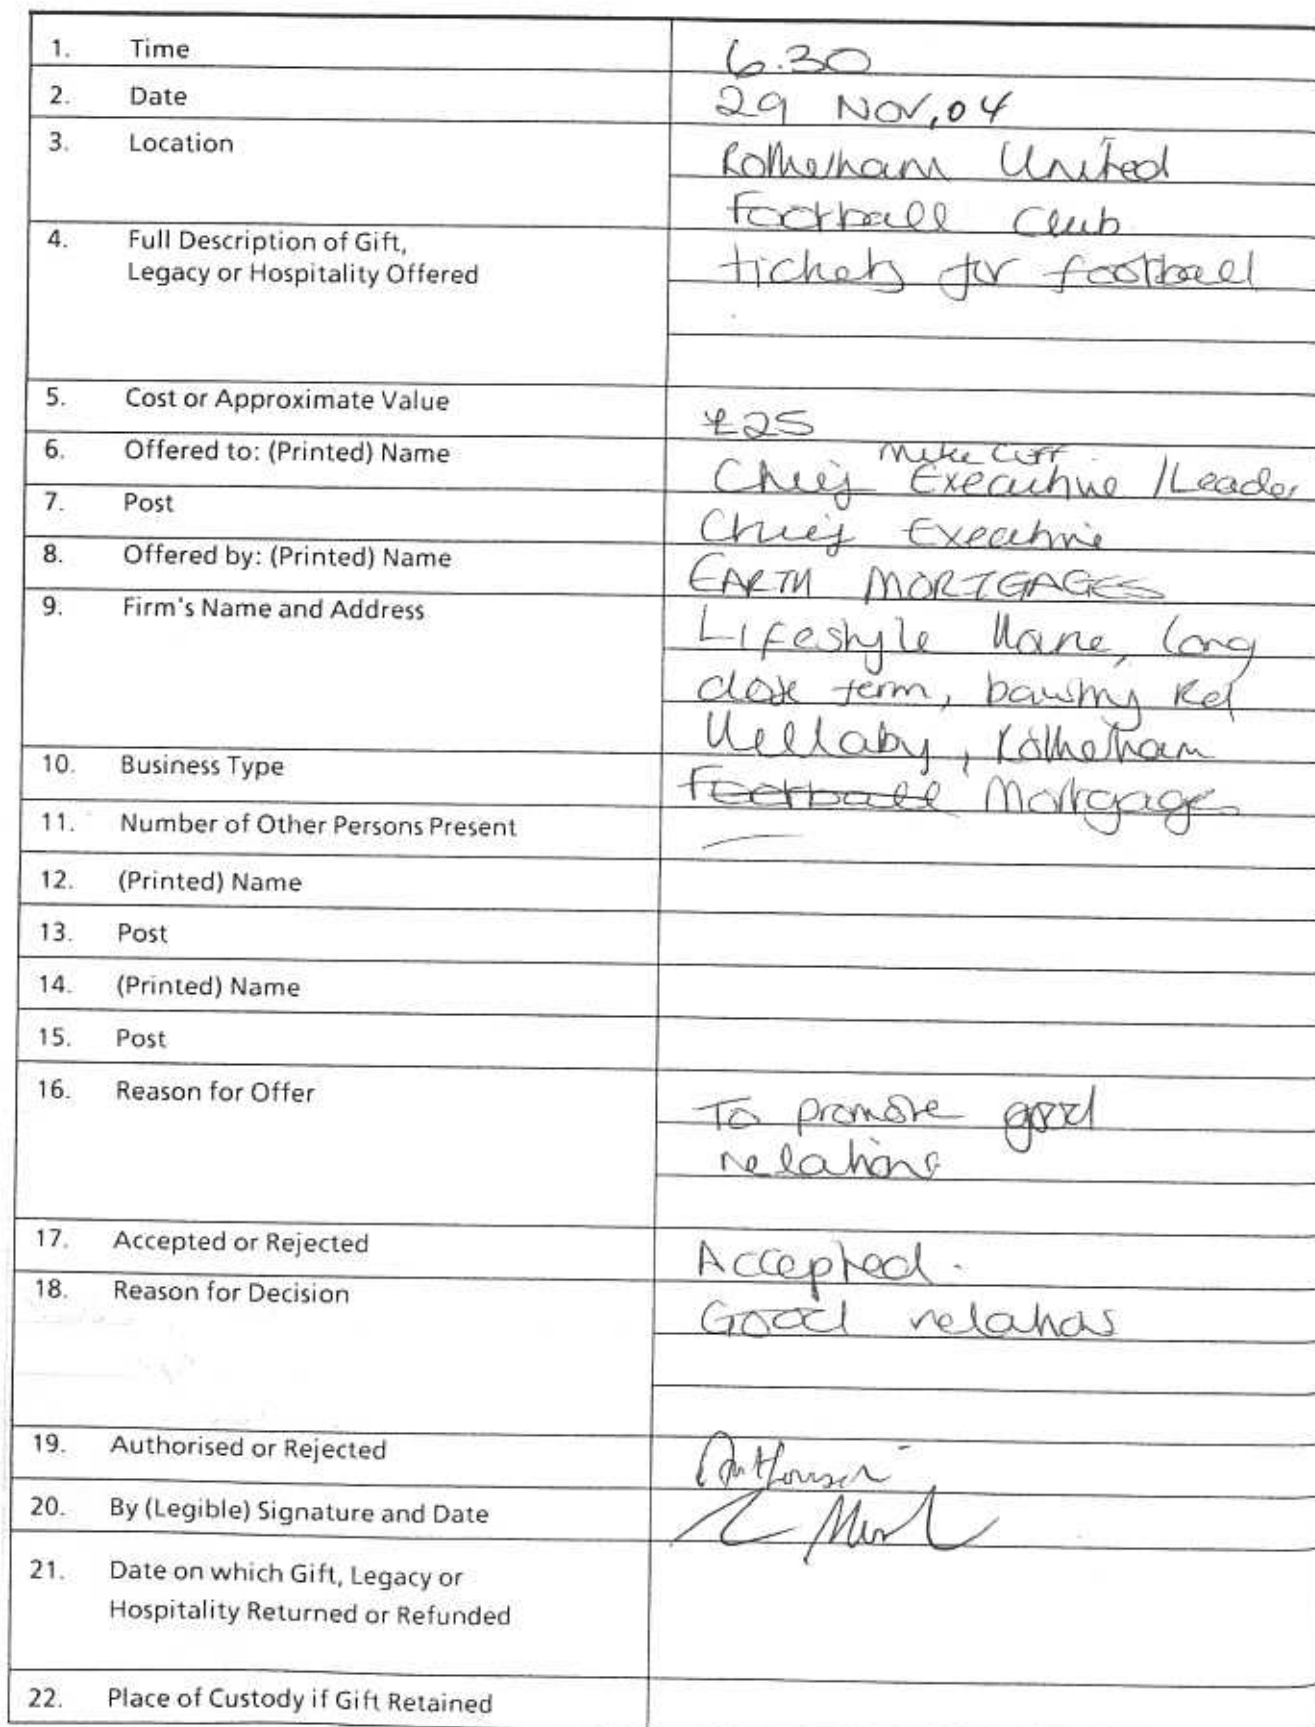 1. Time 6.30
2. Date 29 NOV, 04
3. Location Rotherham United
Football Club
4. Full Description of Gift,
Legacy or Hospitality Offered tickets for football
5. Cost or Approximate Value £25
Mike Cuff
6. Offered to: (Printed) Name Chief Executive / Leader
7. Post Chief Executive
8. Offered by: (Printed) Name EARTH MORTGAGES
9. Firm's Name and Address Lifestyle House, long
close, bawtry Rd
Hellaby, Rotherham
10. Business Type Football Mortgages
11. Number of Other Persons Present —
12. (Printed) Name
13. Post
14. (Printed) Name
15. Post
16. Reason for Offer To promote good
relations
17. Accepted or Rejected Accepted.
18. Reason for Decision Good relations
19. Authorised or Rejected Authorised
20. By (Legible) Signature and Date
21. Date on which Gift, Legacy or
Hospitality Returned or Refunded
22. Place of Custody if Gift Retained